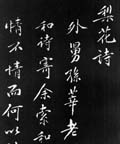 梨花詩
外舅孫莘老
和詩寄余索和
情不情而何以